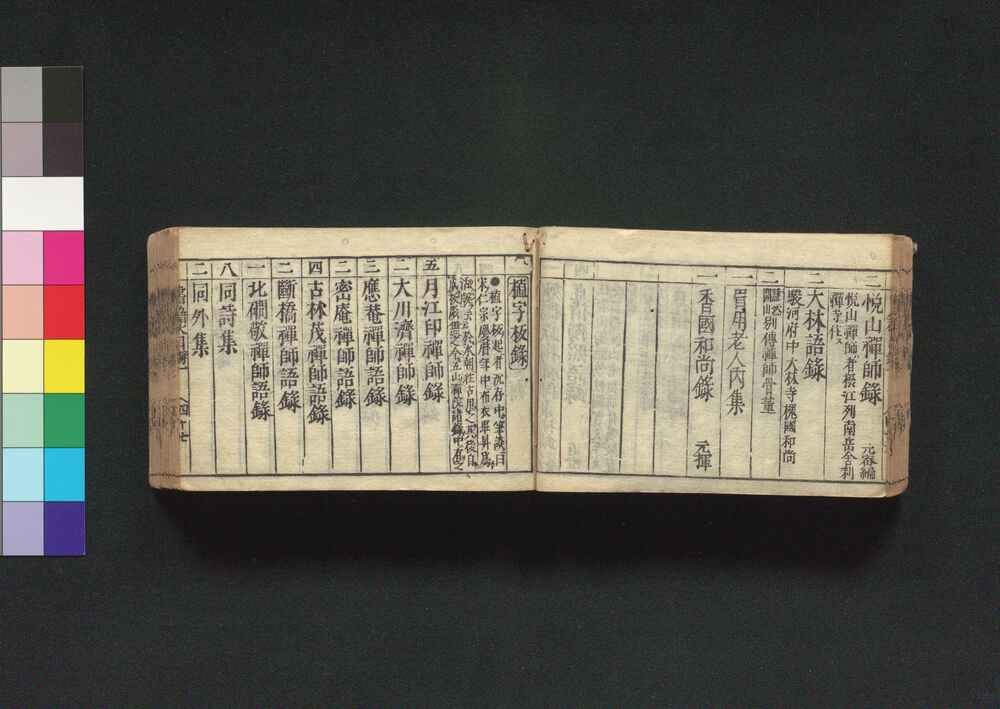 二 悦山禪師錄 元容編
悦山禪師者攝江列南岳舍利
禪寺住ス
二 大林語錄
駿河府中大林寺槐國和尚
二 別傳禪師骨董
一 胃用老人内集
一 香國和尚錄 元揮
植字板錄
●植字板起者沉存中筆談曰
宋仁宗慶曆年中布衣畢昇爲
五 月江印禪師錄
二 大川濟禪師錄
三 應菴禪師語錄
二 密庵禪師語錄
四 古林茂禪師語錄
二 斷橋禪師語錄
一 北磵敬禪師語錄
八 同詩集
二 同外集
四十七